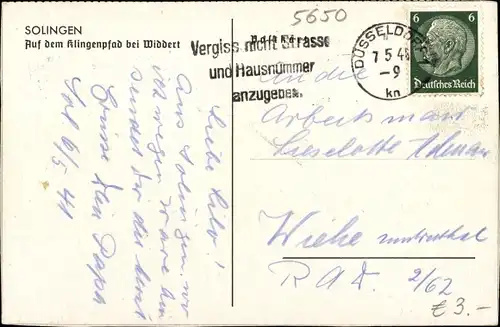 SOLINGEN
Auf dem Klingenpfad bei Widdert
5650
Vergiss nicht Strasse
und Hausnummer
anzugeben.
DÜSSELDORF
7 5 4
-9
kn
6 6
Deutsches Reich
Liebe Lilo!
Aus Solingen, wo
ich wegen
sendet dir
Grüsse dein Papa
Sol 6/5 41
An die
Arbeitsmaid
Lieselotte
Wiehe
RAD. 2/62
€ 3.-